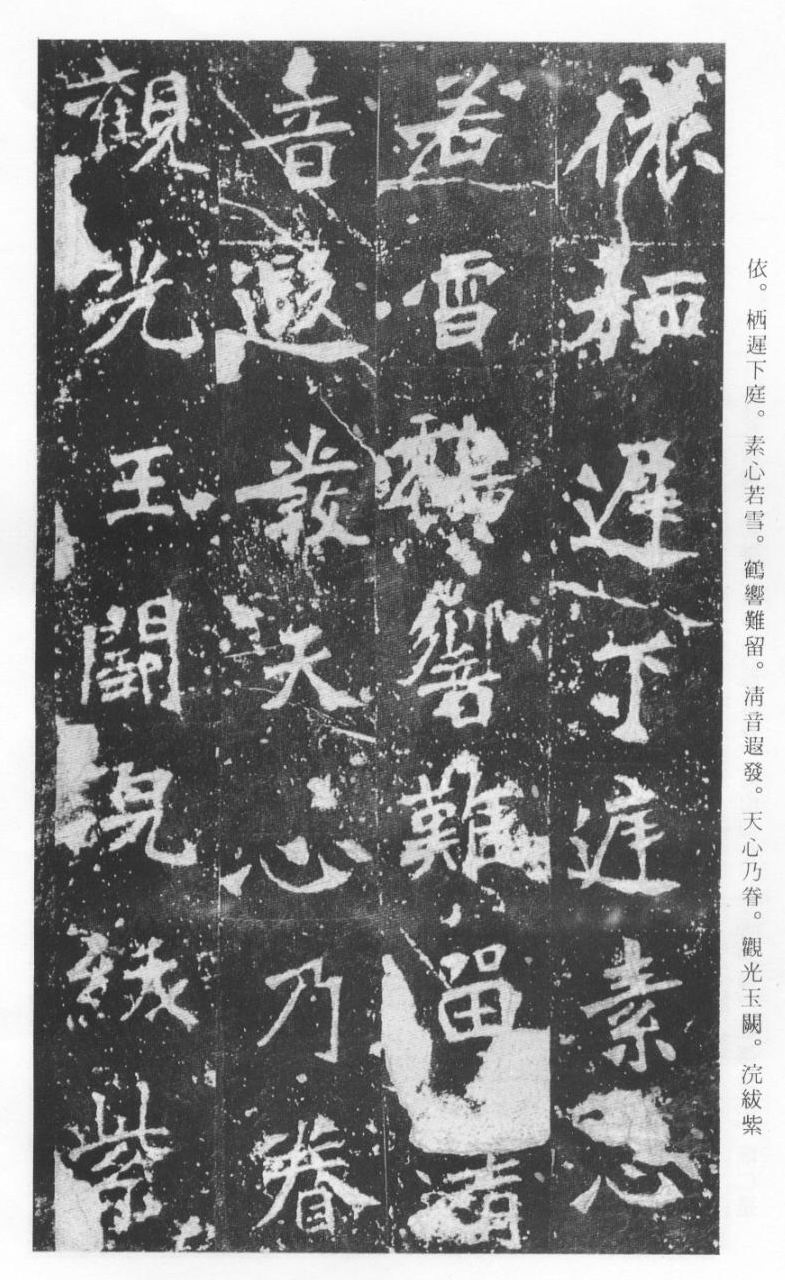 依。栖遲下庭。素心若雪。鶴響難留。淸音遐發。天心乃眷。觀光玉闕。浣紱紫
依栖遲下庭素心
若雪鶴響難留清
音遐發天心乃眷
觀光玉闕浣紱紫